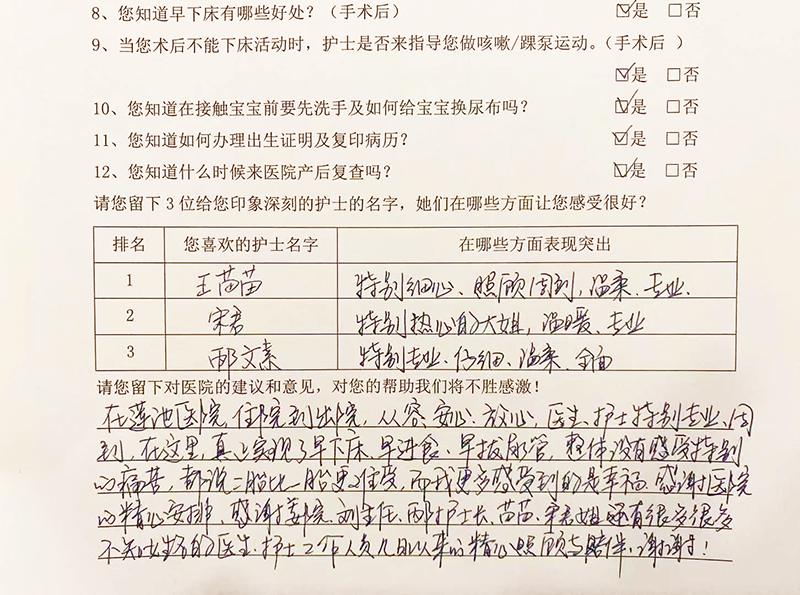 8、您知道早下床有哪些好处？（手术后） ☑是 □否
9、当您术后不能下床活动时，护士是否来指导您做咳嗽/踝泵运动。（手术后 ）
☑是 □否
10、您知道在接触宝宝前要先洗手及如何给宝宝换尿布吗？ ☑是 □否
11、您知道如何办理出生证明及复印病历？ ☑是 □否
12、您知道什么时候来医院产后复查吗？ ☑是 □否
请您留下3位给您印象深刻的护士的名字，她们在哪些方面让您感受很好？
排名 您喜欢的护士名字 在哪些方面表现突出
1 王苗苗 特别细心、照顾周到，温柔、专业、
2 宋君 特别热心的大姐，温暖、专业
3 邴文素 特别专业、仔细、温柔、全面
请您留下对医院的建议和意见，对您的帮助我们将不胜感激！
在莲池医院，住院到出院，从容、安心、放心，医生、护士特别专业、周
到，在这里，真正实现了早下床、早进食、早拔尿管，整体没有感受特别
的痛苦，都说二胎比一胎更难受，而我更多感受到的是幸福，感谢医院
的精心安排，感谢姜院、刘主任、邴护士长、苗苗、宋君姐还有很多很多
不知姓名的医生、护士工作人员几日以来的精心照顾与陪伴，谢谢！